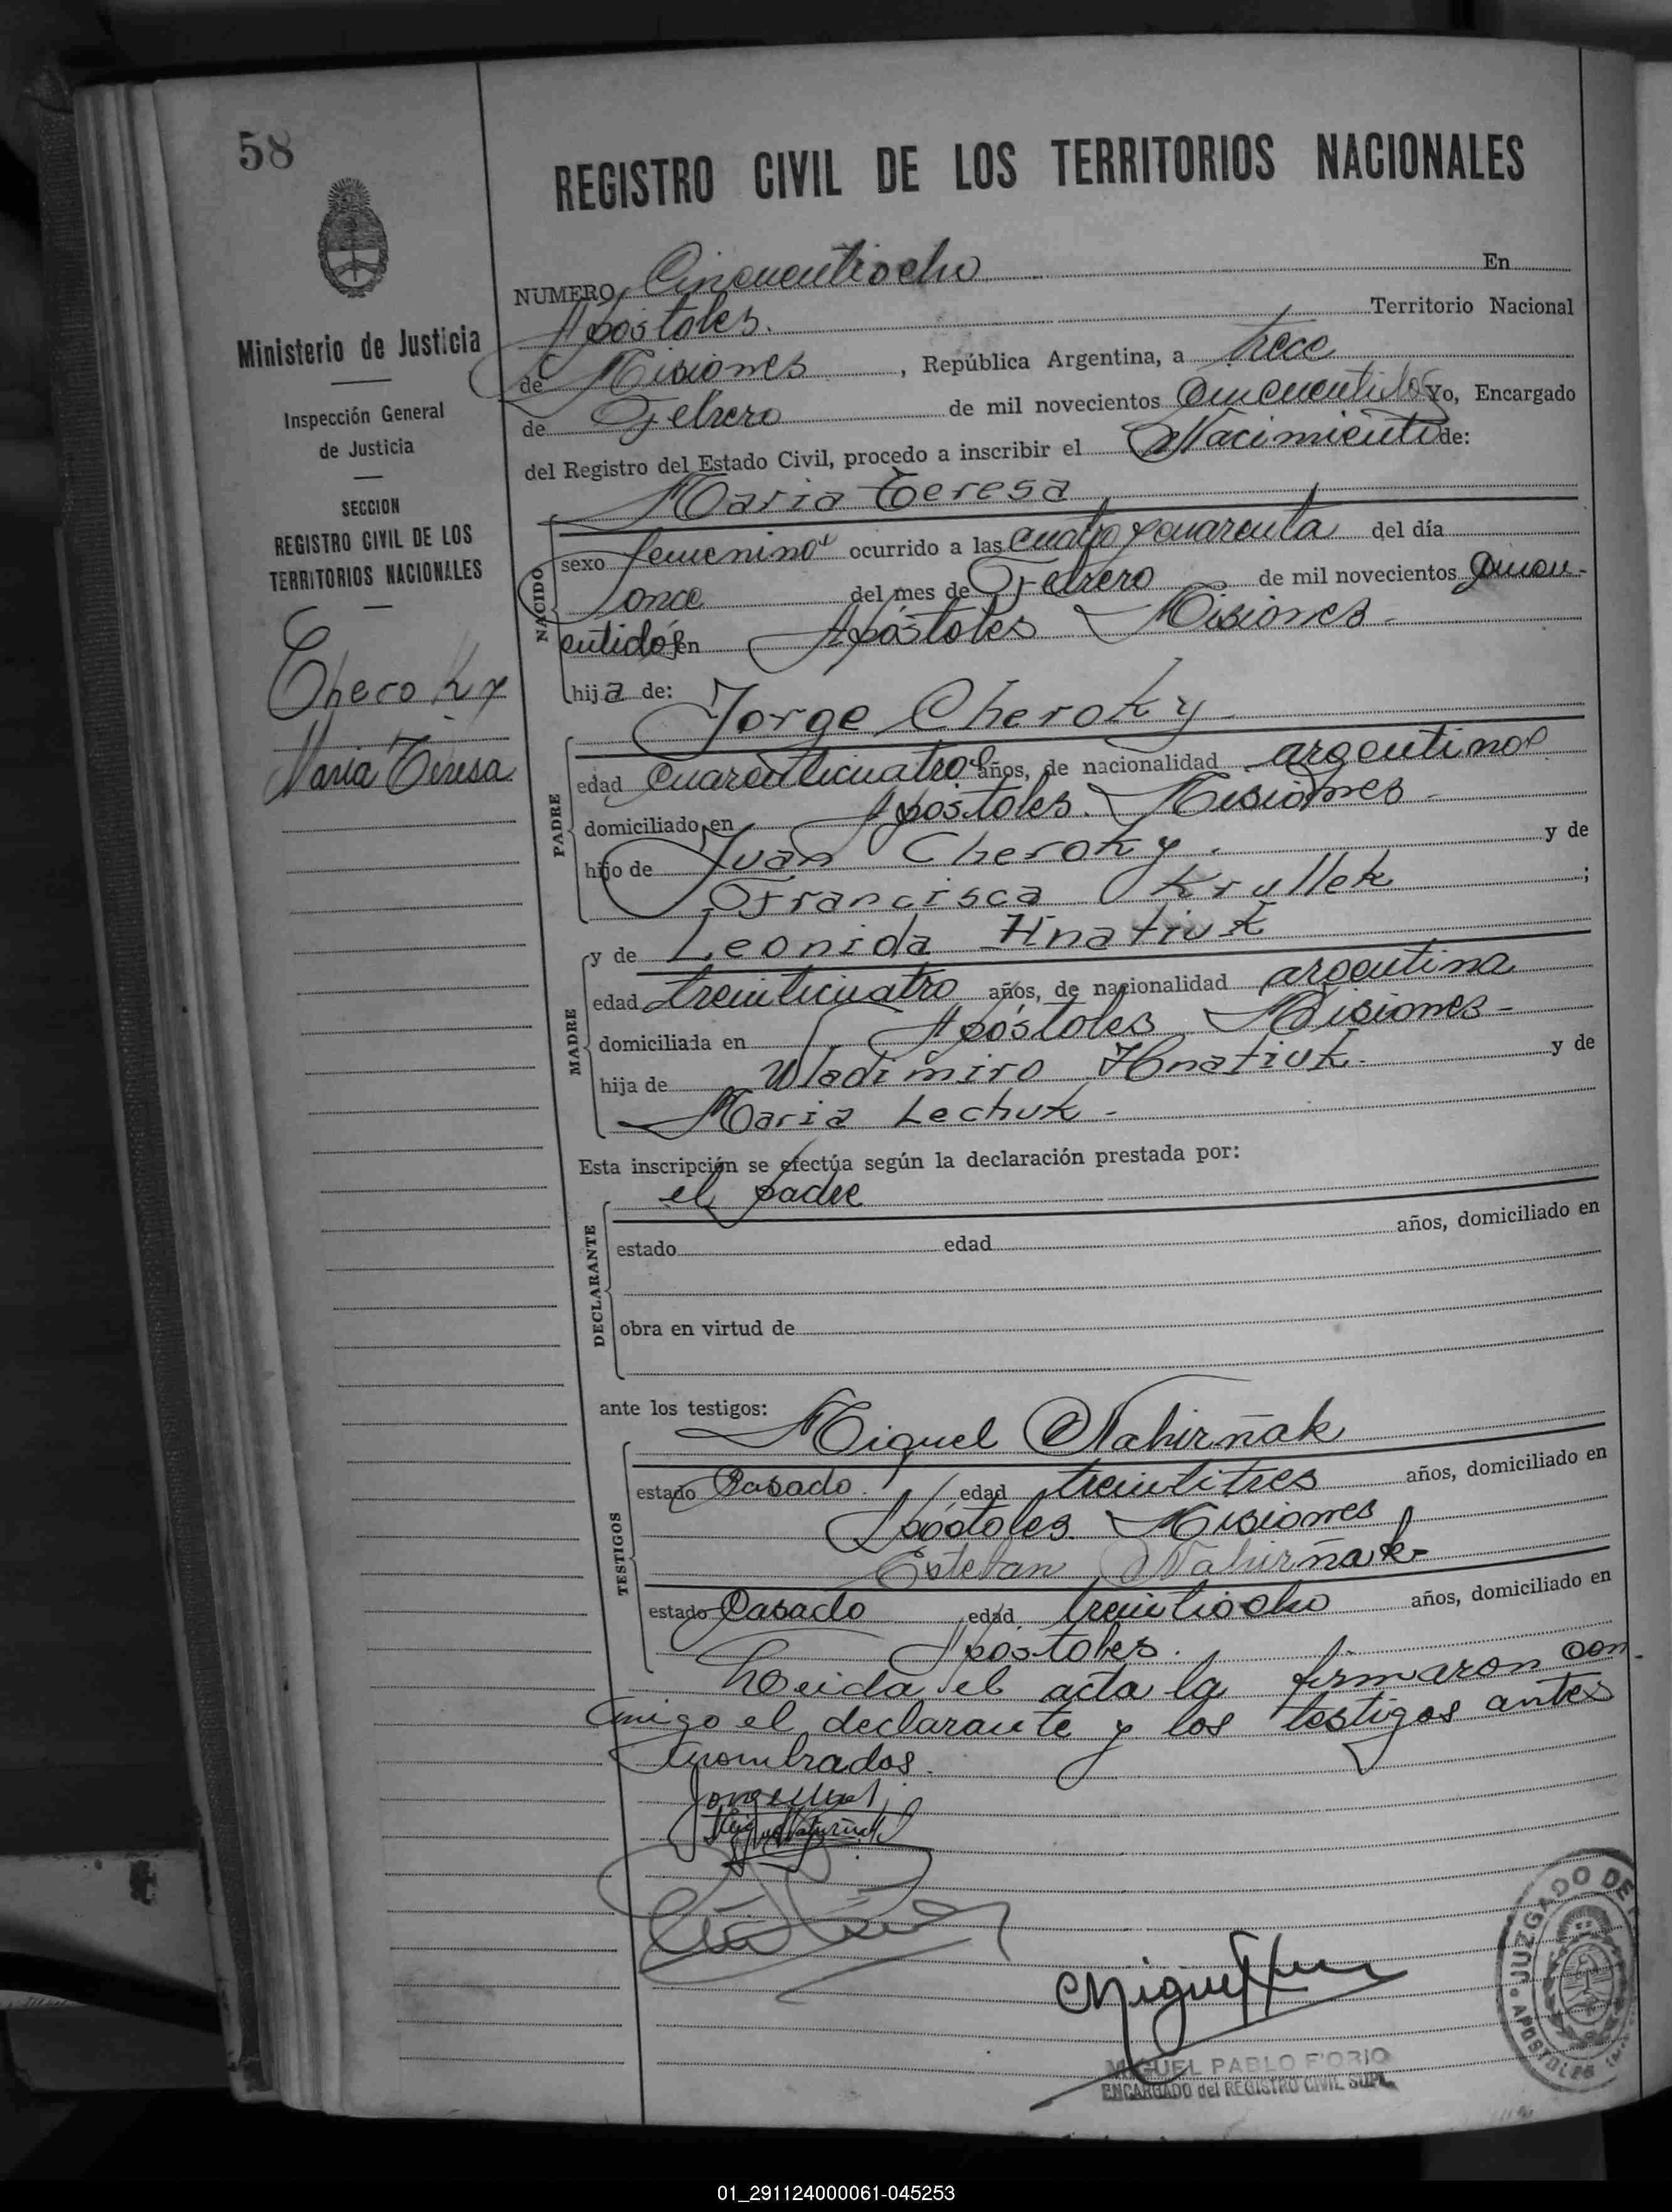 58
REGISTRO CIVIL DE LOS TERRITORIOS NACIONALES
Ministerio de Justicia
Inspección General
de Justicia
SECCION
REGISTRO CIVIL DE LOS
TERRITORIOS NACIONALES
Cheroky
Maria Teresa
NUMERO Cincuentiocho En
Apóstoles. Territorio Nacional
de Misiones, República Argentina, a trece
de Febrero de mil novecientos cincuentidos Yo, Encargado
del Registro del Estado Civil, procedo a inscribir el Nacimiento de:
Maria Teresa
NACIDO
sexo femenino ocurrido a las cuatro y cuarenta del día
once del mes de Febrero de mil novecientos cincu-
entidós en Apóstoles Misiones-
hija de:
Jorge Cheroky-
PADRE
edad cuarenticuatro años, de nacionalidad argentino
domiciliado en Apóstoles. Misiones-
hijo de Juan Cheroky. y de
Francisca Krullek ;
y de Leonida Hnatiuk
MADRE
edad treinticuatro años, de nacionalidad argentina
domiciliada en Apóstoles Misiones-
hija de Wladimiro Hnatiuk- y de
Maria Lechuk-
Esta inscripción se efectúa según la declaración prestada por:
el padre
DECLARANTE
estado edad años, domiciliado en
obra en virtud de
ante los testigos:
Miguel Nahirñak
TESTIGOS
estado Casado. edad treintitres años, domiciliado en
Apóstoles. Misiones
Esteban Nahirñak-
estado Casado edad treintiocho años, domiciliado en
Apostoles.
Leida el acta la firmaron con-
migo el declarante y los testigos antes
nombrados.
MIGUEL PABLO F'ORIO
ENCARGADO del REGISTRO CIVIL SUPL.
JUZGADO DE
APOSTOLES
01_291124000061-045253